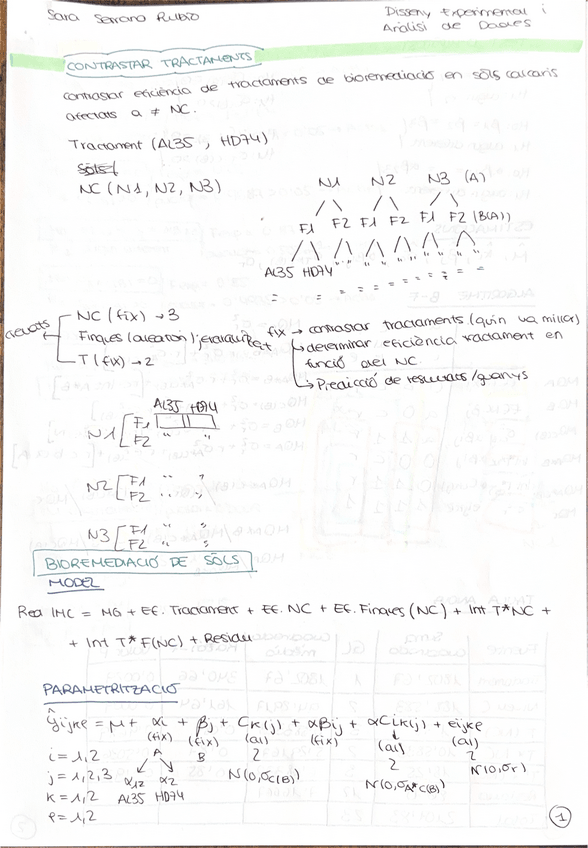 Sara Serrano Rubio
Disseny Experimental i
Anàlisi de Dades
CONTRASTAR TRACTAMENTS
contrastar eficiència de tractaments de bioremediació en sòls calcaris
afectats a ≠ NC.
Tractament (AL35, HD74)
NC (N1, N2, N3)
N1 N2 N3 (A)
F1 F2 F1 F2 F1 F2 (B(A))
AL35 HD74 " " " " " " " " " "
= = = = = = = = = = = =
creuats
NC (fix) → 3
Finques (aleatori) jerarquitzat
T (fix) → 2
fix → contrastar tractaments (quin va millor)
↳ determinar eficiència tractament en
funció del NC.
↳ Predicció de resultats/guanys
AL35 HD74
N1 F1
F2 " "
N2 F1 " "
F2 " "
N3 F1 " "
F2 " "
BIOREMEDIACIÓ DE SÒLS
MODEL
Red IMC = MG + Ef. Tractament + Ef. NC + Ef. Finques (NC) + Int T*NC +
+ Int T*F(NC) + Residu
PARAMETRITZACIÓ
ŷijkℓ = μ + αi + βj + Ck(j) + αβij + αCik(j) + eijkℓ
(fix) (fix) (al) (fix) (al) (al)
i = 1,2 A B 2 2 2
j = 1,2,3 α12 α2 N(0,σC(B)) N(0,σA*C(B)) N(0,σr)
k = 1,2 AL35 HD74
ℓ = 1,2
1